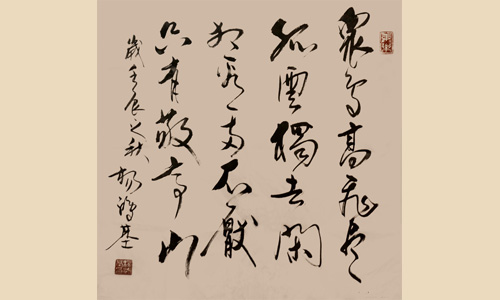 眾鳥高飛盡
孤雲獨去閑
相看兩不厭
只有敬亭山
歲壬辰之秋 楊 基